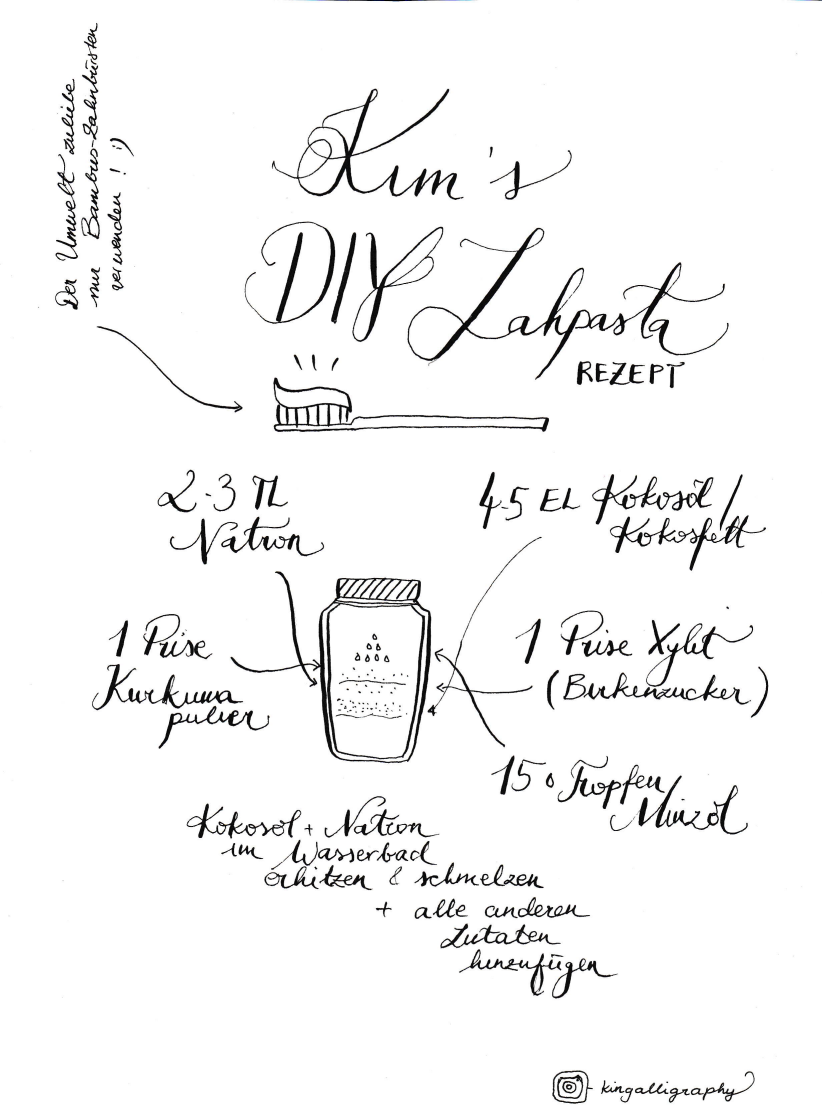 Der Umwelt zuliebe
nur Bambus-Zahnbürsten
verwenden ! :)
Kim's
DIY Zahpasta
REZEPT
2-3 TL
Natron
4-5 EL Kokosöl /
Kokosfett
1 Prise
Kurkuma
pulver
1 Prise Xylit
(Birkenzucker)
15 Tropfen
Minzöl
Kokosöl + Natron
im Wasserbad
erhitzen & schmelzen
+ alle anderen
Zutaten
hinzufügen
kingalligraphy